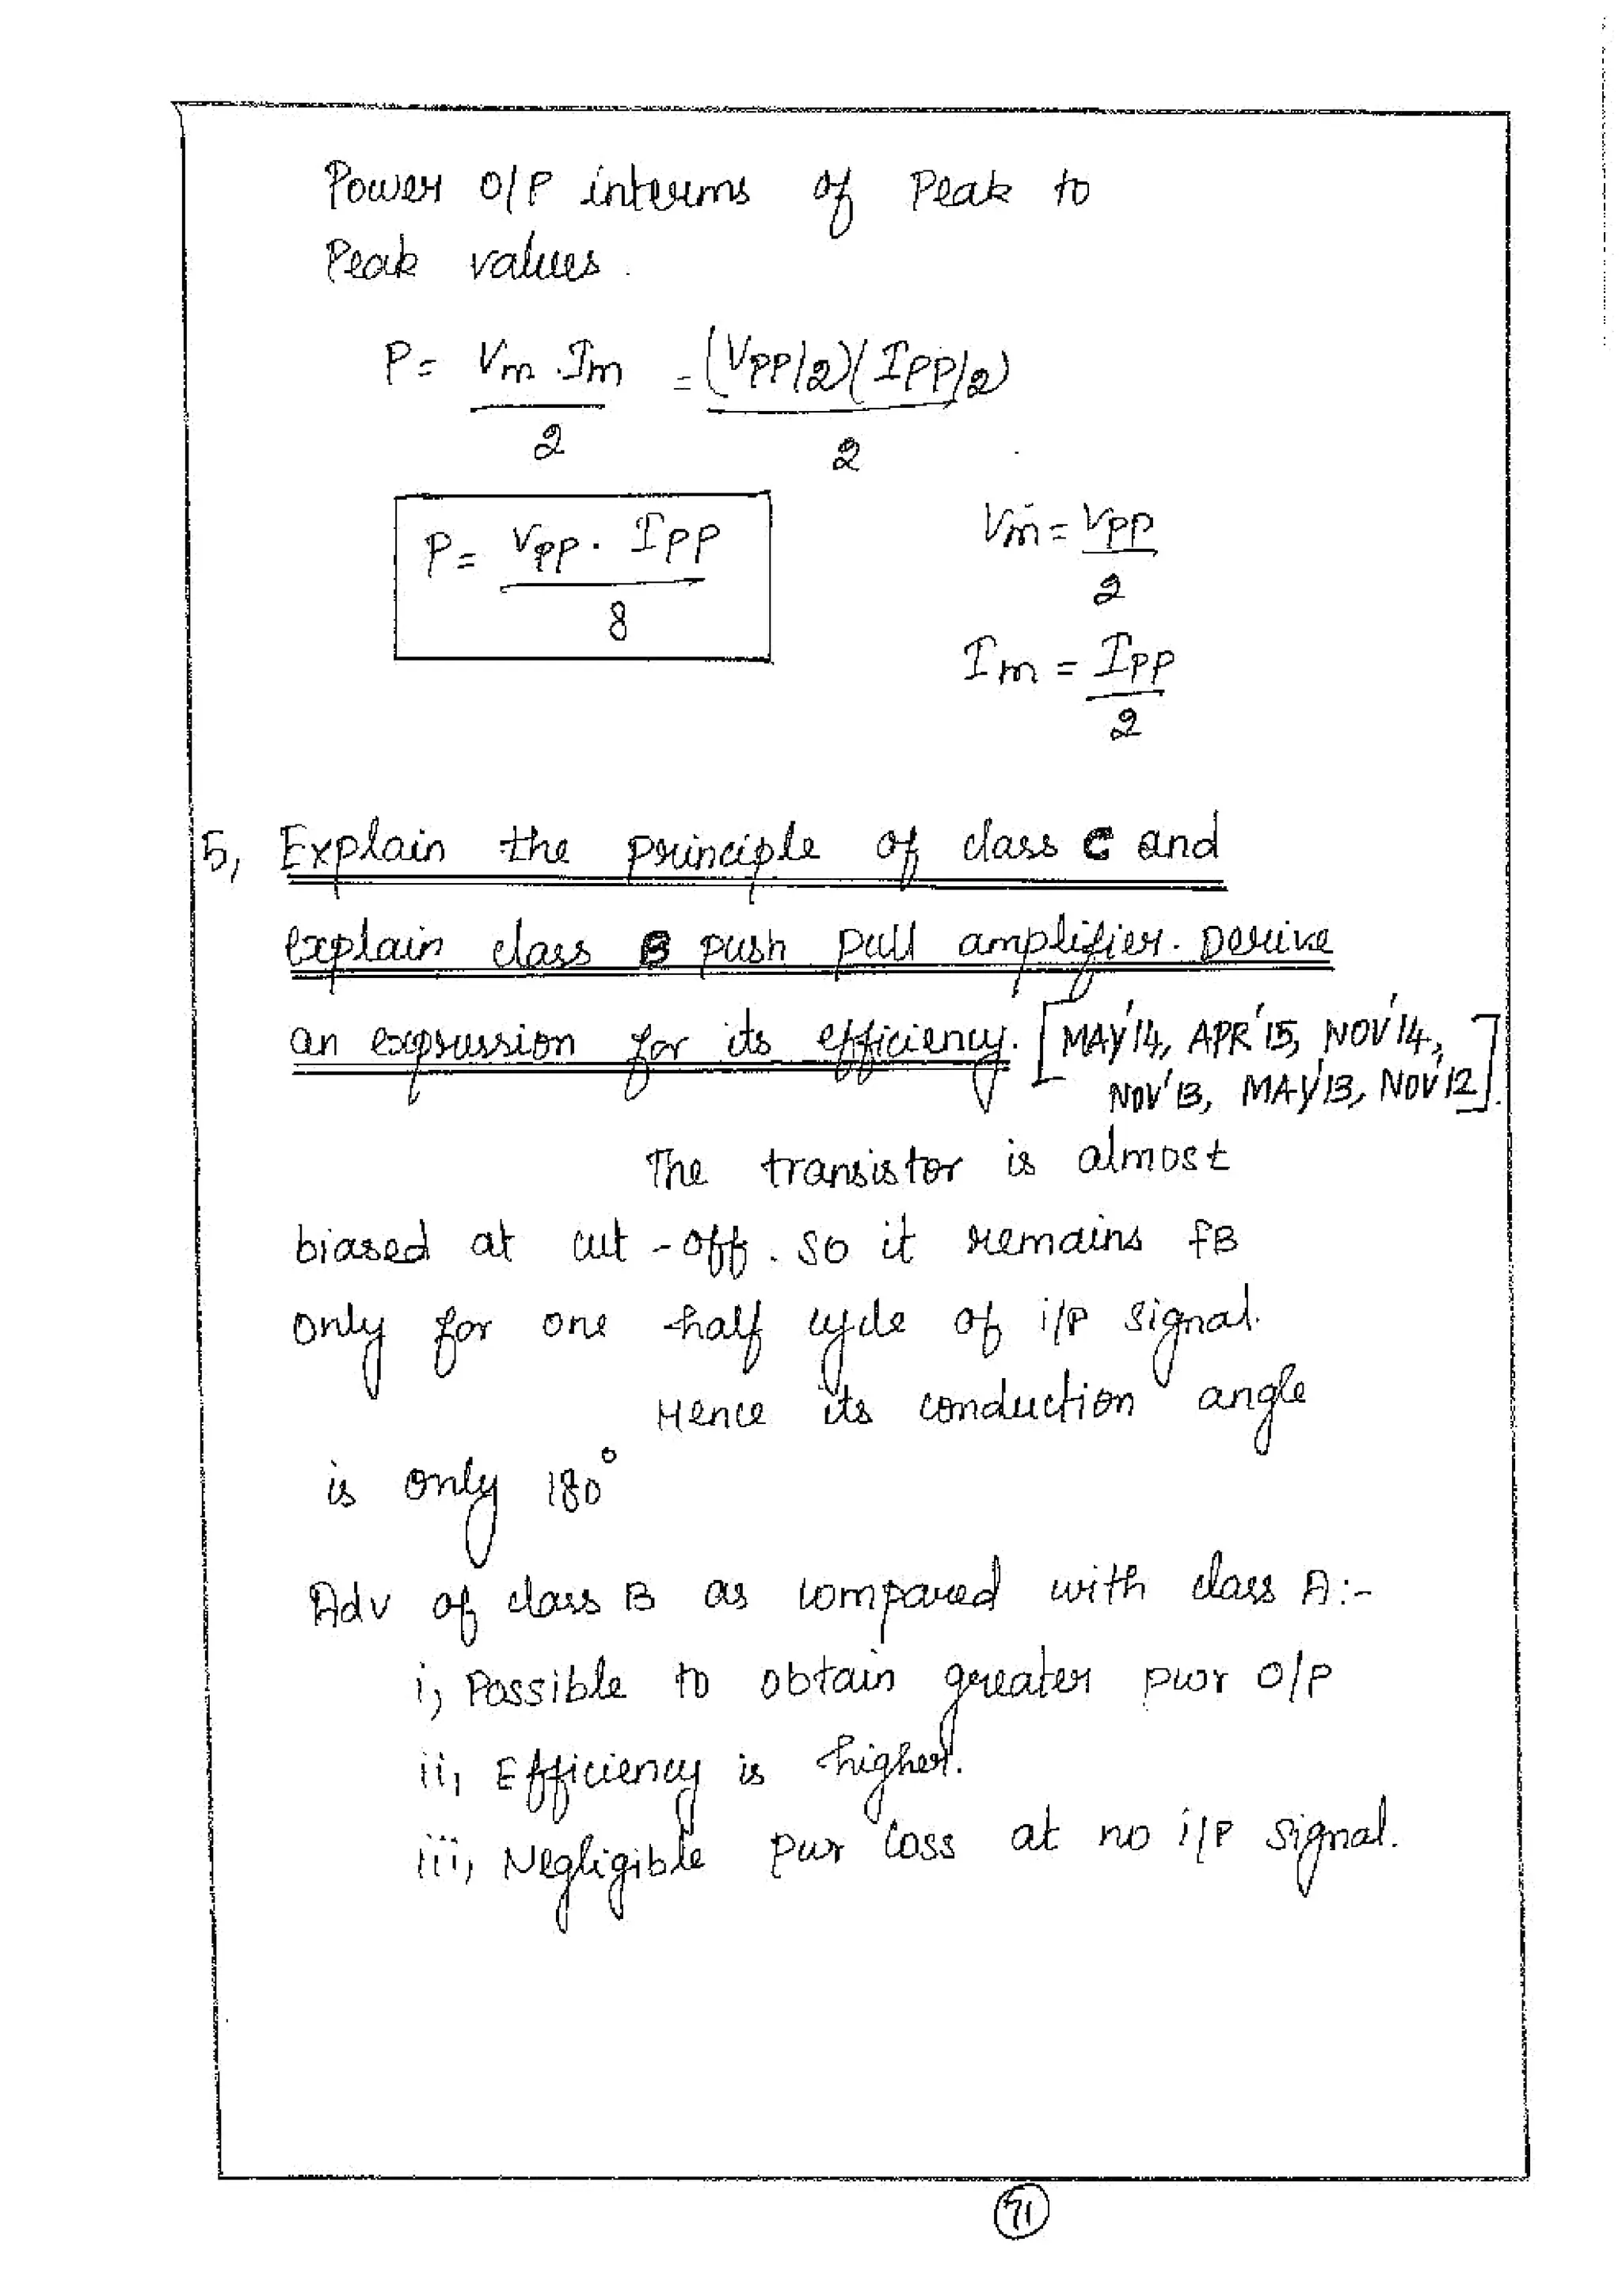 Power O/P interms of Peak to
Peak values.
P = Vm . Im / 2 = (VPP/2)(IPP/2) / 2
P = VPP . IPP / 8
Vm = VPP / 2
Im = IPP / 2
5, Explain the principle of class C and
explain class B push pull amplifier. Derive
an expression for its efficiency. [MAY'14, APR'15, NOV'14,
NOV'13, MAY'13, NOV'12].
The transistor is almost
biased at cut-off. So it remains FB
only for one half cycle of i/P signal.
Hence its conduction angle
is only 180°
Adv of class B as compared with class A:-
i, Possible to obtain greater pwr O/P
ii, Efficiency is higher.
iii, Negligible pwr loss at no i/P signal.